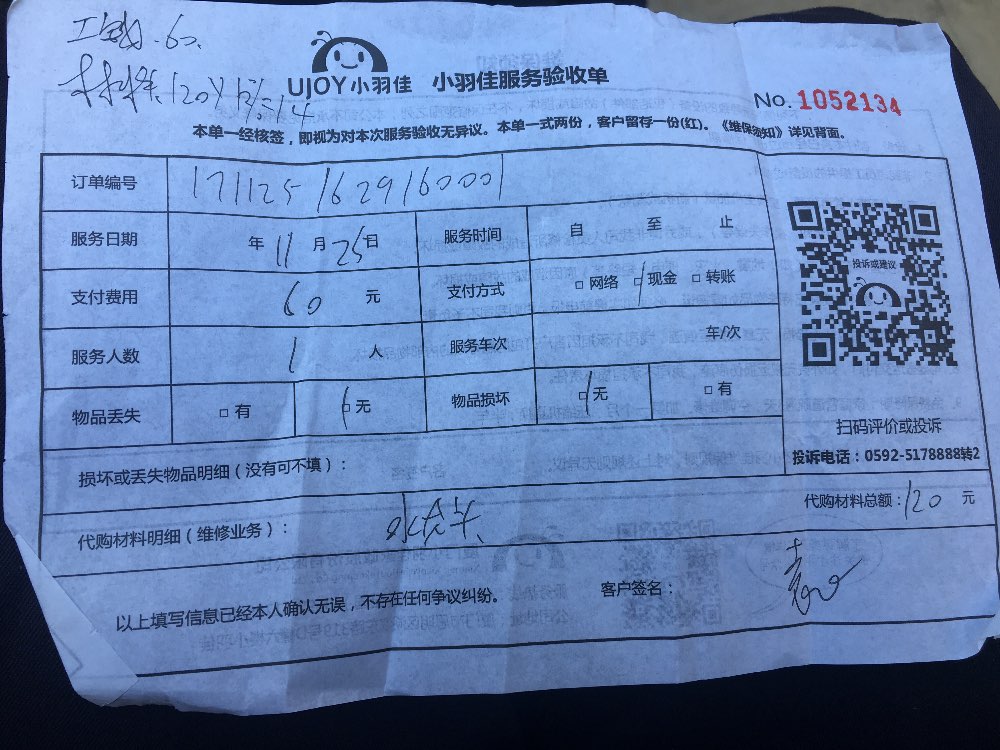 工钱.60.
材料.120
UJOY小羽佳 小羽佳服务验收单
No. 1052134
本单一经核签，即视为对本次服务验收无异议。本单一式两份，客户留存一份(红)。《维保须知》详见背面。
订单编号 1711251629160001
服务日期 年 11 月 25 日 服务时间 自 至 止
支付费用 60 元 支付方式 □ 网络 □ 现金 □ 转账
服务人数 1 人 服务车次 车/次
物品丢失 □ 有 □ 无 物品损坏 □ 无 □ 有
投诉或建议
扫码评价或投诉
投诉电话：0592-5178888转2
损坏或丢失物品明细（没有可不填）：
代购材料明细（维修业务）： 水龙头.
代购材料总额：120 元
以上填写信息已经本人确认无误，不存在任何争议纠纷。 客户签名：